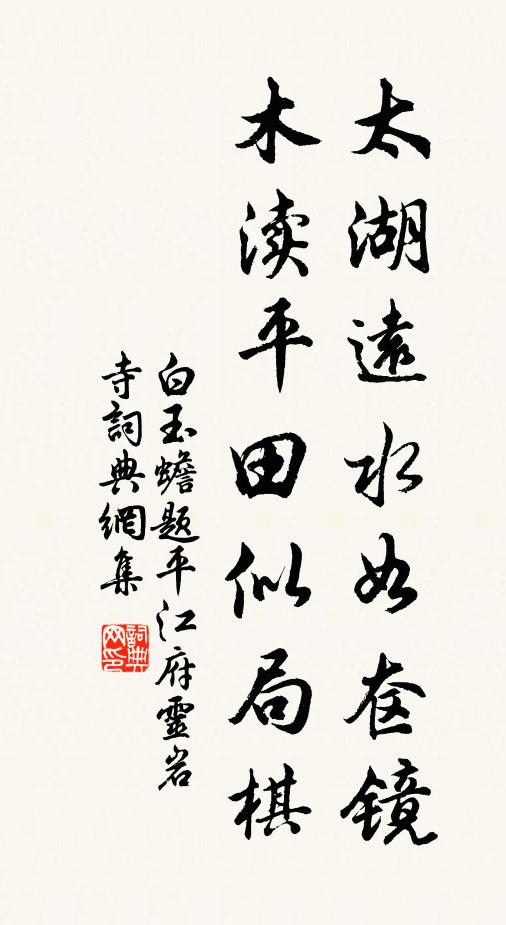 太湖遠水如奁镜
木渎平田似局棋
白玉蟾题平江府靈岩
寺詞典網集
詞典
网印